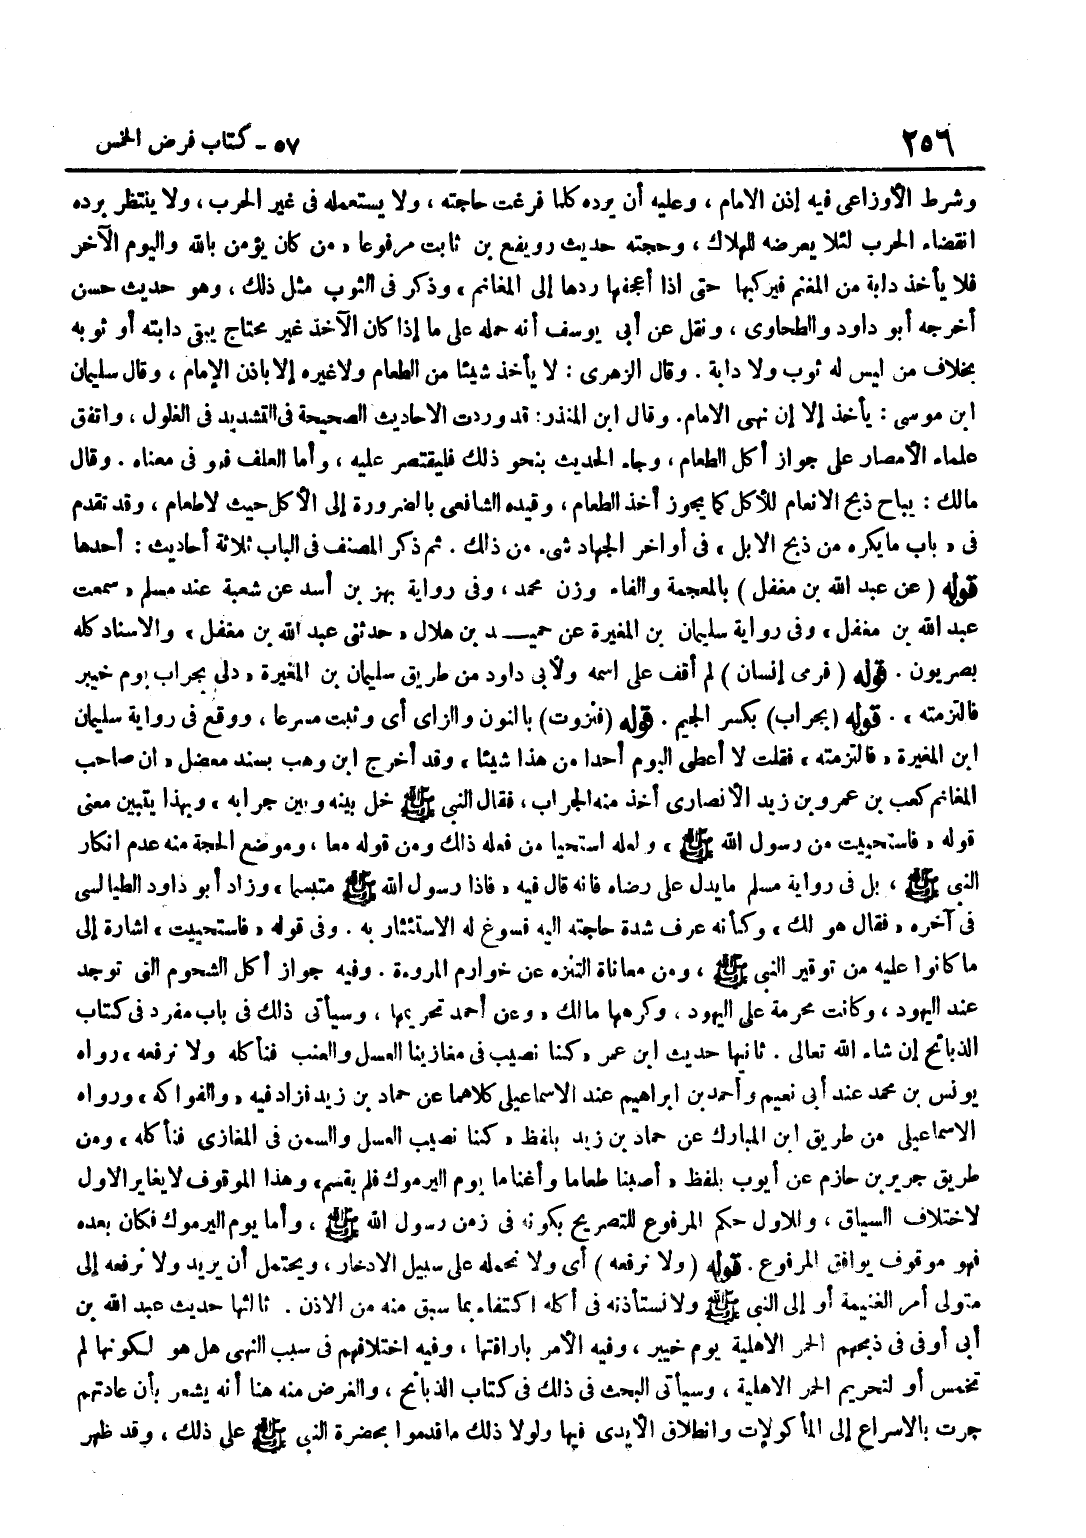 ٢٥٦
٥٧ - كتاب فرض الخمس
وشرط الأوزاعى فيه إذن الامام ، وعليه أن يرده كلما فرغت حاجته ، ولا يستعمله فى غير الحرب ، ولا ينتظر برده
انقضاء الحرب لئلا يعرضه للهلاك ، وحجته حديث رويفع بن ثابت مرفوعا « من كان يؤمن بالله واليوم الآخر
فلا يأخذ دابة من المغنم فيركبها حتى اذا أعجفها ردها إلى المغانم » وذكر فى الثوب مثل ذلك ، وهو حديث حسن
أخرجه أبو داود والطحاوى ، ونقل عن أبى يوسف أنه حمله على ما إذا كان الآخذ غير محتاج يبقى دابته أو ثوبه
بخلاف من ليس له ثوب ولا دابة . وقال الزهرى : لا يأخذ شيئا من الطعام ولا غيره إلا باذن الإمام ، وقال سليمان
ابن موسى : يأخذ إلا إن نهى الامام . وقال ابن المنذر : قد وردت الاحاديث الصحيحة فى التشديد فى الغلول ، واتفق
علماء الأمصار على جواز أكل الطعام ، وجاء الحديث بنحو ذلك فليقتصر عليه ، وأما العلف فهو فى معناه . وقال
مالك : يباح ذبح الانعام للأكل كما يجوز أخذ الطعام ، وقيده الشافعى بالضرورة إلى الأكل حيث لا طعام ، وقد تقدم
فى « باب ما يكره من ذبح الابل » فى أواخر الجهاد شىء من ذلك . ثم ذكر المصنف فى الباب ثلاثة أحاديث : أحدها
قوله ( عن عبد الله بن مغفل ) بالمعجمة والفاء وزن محمد ، وفى رواية بهز بن أسد عن شعبة عند مسلم « سمعت
عبد الله بن مغفل » وفى رواية سليمان بن المغيرة عن حميـــد بن هلال « حدثنى عبد الله بن مغفل » والاسناد كله
بصريون . قوله ( فرمى إنسان ) لم أقف على اسمه ولأبى داود من طريق سليمان بن المغيرة « دلى بجراب يوم خيبر
فالتزمته » . قوله ( بجراب ) بكسر الجيم . قوله ( فنزوت ) بالنون والزاى أى وثبت مسرعا ، ووقع فى رواية سليمان
ابن المغيرة « فالتزمته » فقلت لا أعطى اليوم أحدا من هذا شيئا » وقد أخرج ابن وهب بسند معضل « ان صاحب
المغانم كعب بن عمرو بن زيد الأنصارى أخذ منه الجراب ، فقال النبى ﷺ خل بينه وبين جرابه » وبهذا يتبين معنى
قوله « فاستحييت من رسول الله ﷺ » ولعله استحيا من فعله ذلك ومن قوله معا ، وموضع الحجة منه عدم انكار
النبى ﷺ ، بل فى رواية مسلم ما يدل على رضاه فانه قال فيه « فاذا رسول الله ﷺ متبسما » وزاد أبو داود الطيالسى
فى آخره « فقال هو لك » وكأنه عرف شدة حاجته اليه فسوغ له الاستئثار به . وفى قوله « فاستحييت » اشارة إلى
ما كانوا عليه من توقير النبى ﷺ ، ومن معاناة التنزه عن خوارم المروءة . وفيه جواز أكل الشحوم التى توجد
عند اليهود ، وكانت محرمة على اليهود ، وكرهها مالك ، وعن أحمد تحريمها ، وسيأتى ذلك فى باب مفرد فى كتاب
الذبائح إن شاء الله تعالى . ثانيها حديث ابن عمر « كنا نصيب فى مغازينا العسل والعنب فنأكله ولا نرفعه » رواه
يونس بن محمد عند أبى نعيم وأحمد بن ابراهيم عند الاسماعيلى كلاهما عن حماد بن زيد فزاد فيه « والفواكه » ورواه
الاسماعيلى من طريق ابن المبارك عن حماد بن زيد بلفظ « كنا نصيب العسل والسمن فى المغازى فنأكله » ومن
طريق جرير بن حازم عن أيوب بلفظ « أصبنا طعاما وأغناما يوم اليرموك فلم يقسم » وهذا الموقوف لا يغاير الاول
لاختلاف السياق ، وللاول حكم المرفوع للتصريح بكونه فى زمن رسول الله ﷺ ، وأما يوم اليرموك فكان بعده
فهو موقوف يوافق المرفوع . قوله ( ولا نرفعه ) أى ولا نحمله على سبيل الادخار ، ويحتمل أن يريد ولا نرفعه إلى
متولى أمر الغنيمة أو إلى النبى ﷺ ولا نستأذنه فى أكله اكتفاء بما سبق منه من الاذن . ثالثها حديث عبد الله بن
أبى أوفى فى ذبحهم الحمر الاهلية يوم خيبر ، وفيه الأمر باراقتها ، وفيه اختلافهم فى سبب النهى هل هو لكونها لم
تخمس أو لتحريم الحمر الاهلية ، وسيأتى البحث فى ذلك فى كتاب الذبائح ، والغرض منه هنا أنه يشعر بأن عادتهم
جرت بالاسراع إلى المأكولات وانطلاق الأيدى فيها ولولا ذلك ما قدموا بحضرة النبى ﷺ على ذلك ، وقد ظهر